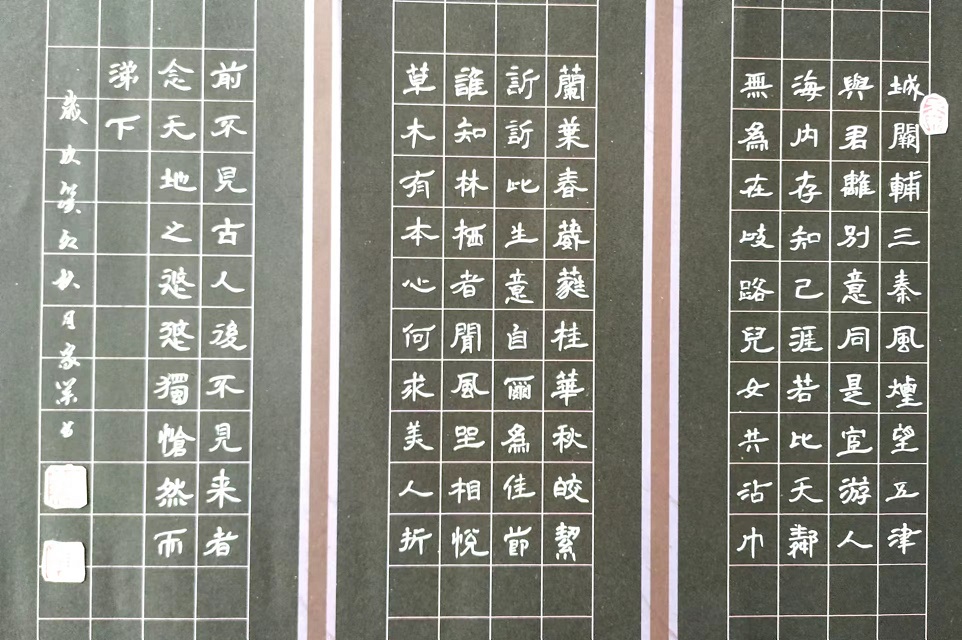 城闕輔三秦風煙望五津
與君離別意同是宦游人
海内存知己涯若比天鄰
無爲在岐路兒女共沾巾
蘭葉春葳蕤桂華秋皎絜
訢訢此生意自爾爲佳節
誰知林栖者聞風坐相悅
草木有本心何求美人折
前不見古人後不見来者
念天地之悠悠獨愴然而
涕下
歲次癸卯秋月家榮书